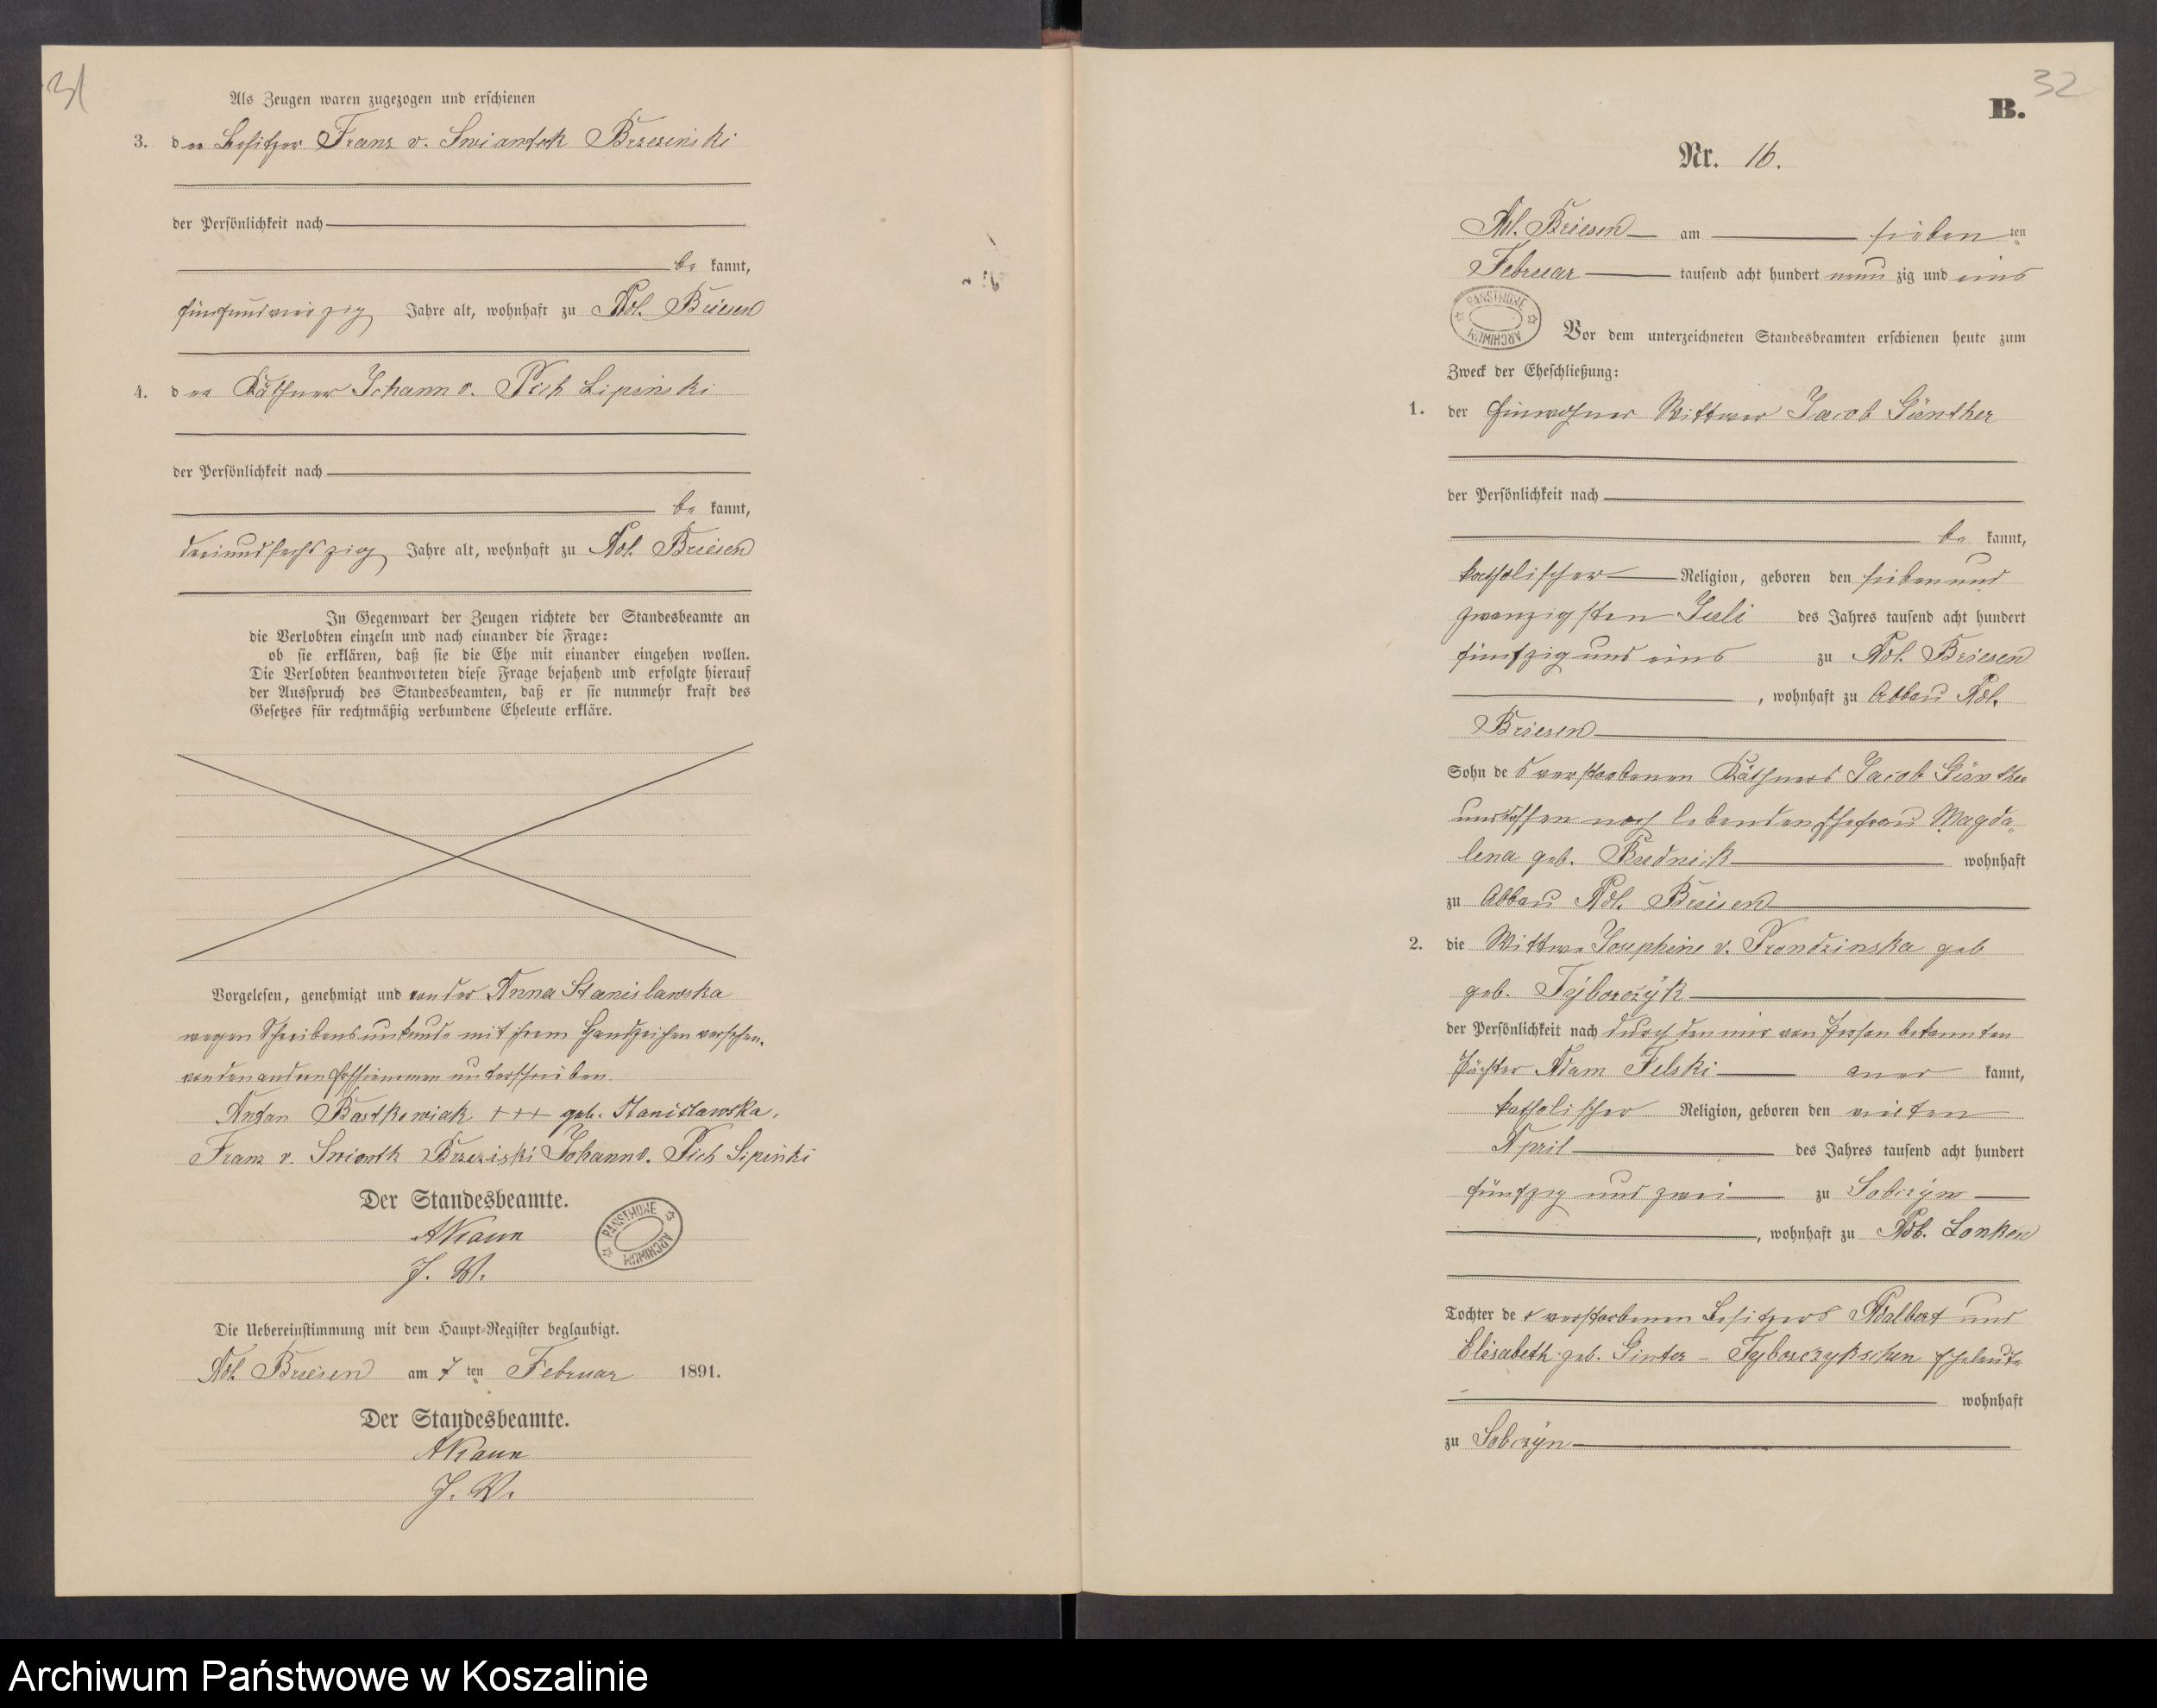 31
Als Zeugen waren zugezogen und erschienen
3. der Besitzer Franz v. Swiantek Brzezinski
der Persönlichkeit nach
be kannt,
fünfundvierzig Jahre alt, wohnhaft zu Adl. Briesen
4. der Käthner Johann v. Pich Lipinski
der Persönlichkeit nach
be kannt,
dreiundsechszig Jahre alt, wohnhaft zu Adl. Briesen
In Gegenwart der Zeugen richtete der Standesbeamte an
die Verlobten einzeln und nach einander die Frage:
ob sie erklären, daß sie die Ehe mit einander eingehen wollen.
Die Verlobten beantworteten diese Frage bejahend und erfolgte hierauf
der Ausspruch des Standesbeamten, daß er sie nunmehr kraft des
Gesetzes für rechtmäßig verbundene Eheleute erkläre.
Vorgelesen, genehmigt und von der Anna Stanislawska
wegen Schreibensunkunde mit ihrem Handzeichen versehen.
von den andern Erschienenen unterschrieben.
Anton Bartkowiak +++ geb. Stanislawska.
Franz v. Swiontk Brzeziski Johann v. Pich Lipinski
Der Standesbeamte.
J. V.
PAŃSTWOWE ARCHIWUM
Die Uebereinstimmung mit dem Haupt-Register beglaubigt.
Adl. Briesen am 7 ten Februar 1891.
Der Standesbeamte.
J. V.
32
B.
Nr. 16.
Adl. Briesen am sieben ten
Februar tausend acht hundert neun zig und eins
PAŃSTWOWE ARCHIWUM
Vor dem unterzeichneten Standesbeamten erschienen heute zum
Zweck der Eheschließung:
1. der Einwohner Wittwer Jacob Günther
der Persönlichkeit nach
be kannt,
katholischer Religion, geboren den siebenund
zwanzigsten Juli des Jahres tausend acht hundert
fünfzig und eins zu Adl. Briesen
, wohnhaft zu Abbau Adl.
Briesen
Sohn de s verstorbenen Käthners Jacob Günther
und dessen noch lebenden Ehefrau Magda„
lena geb. Rudnick wohnhaft
zu Abbau Adl. Briesen
2. die Wittwe Josephine v. Prondzinska geb
geb. Tyborczyk
der Persönlichkeit nach durch den mir von Person bekannten
Pächter Adam Felski aner kannt,
katholischer Religion, geboren den vierten
April des Jahres tausend acht hundert
fünfzig und zwei zu Sabczyn
, wohnhaft zu Adl. Lonken
Tochter de r verstorbenen Besitzers Adalbert und
Elisabeth geb. Ginter - Tyborczykschen Eheleute
wohnhaft
zu Sobczyn
Archiwum Państwowe w Koszalinie